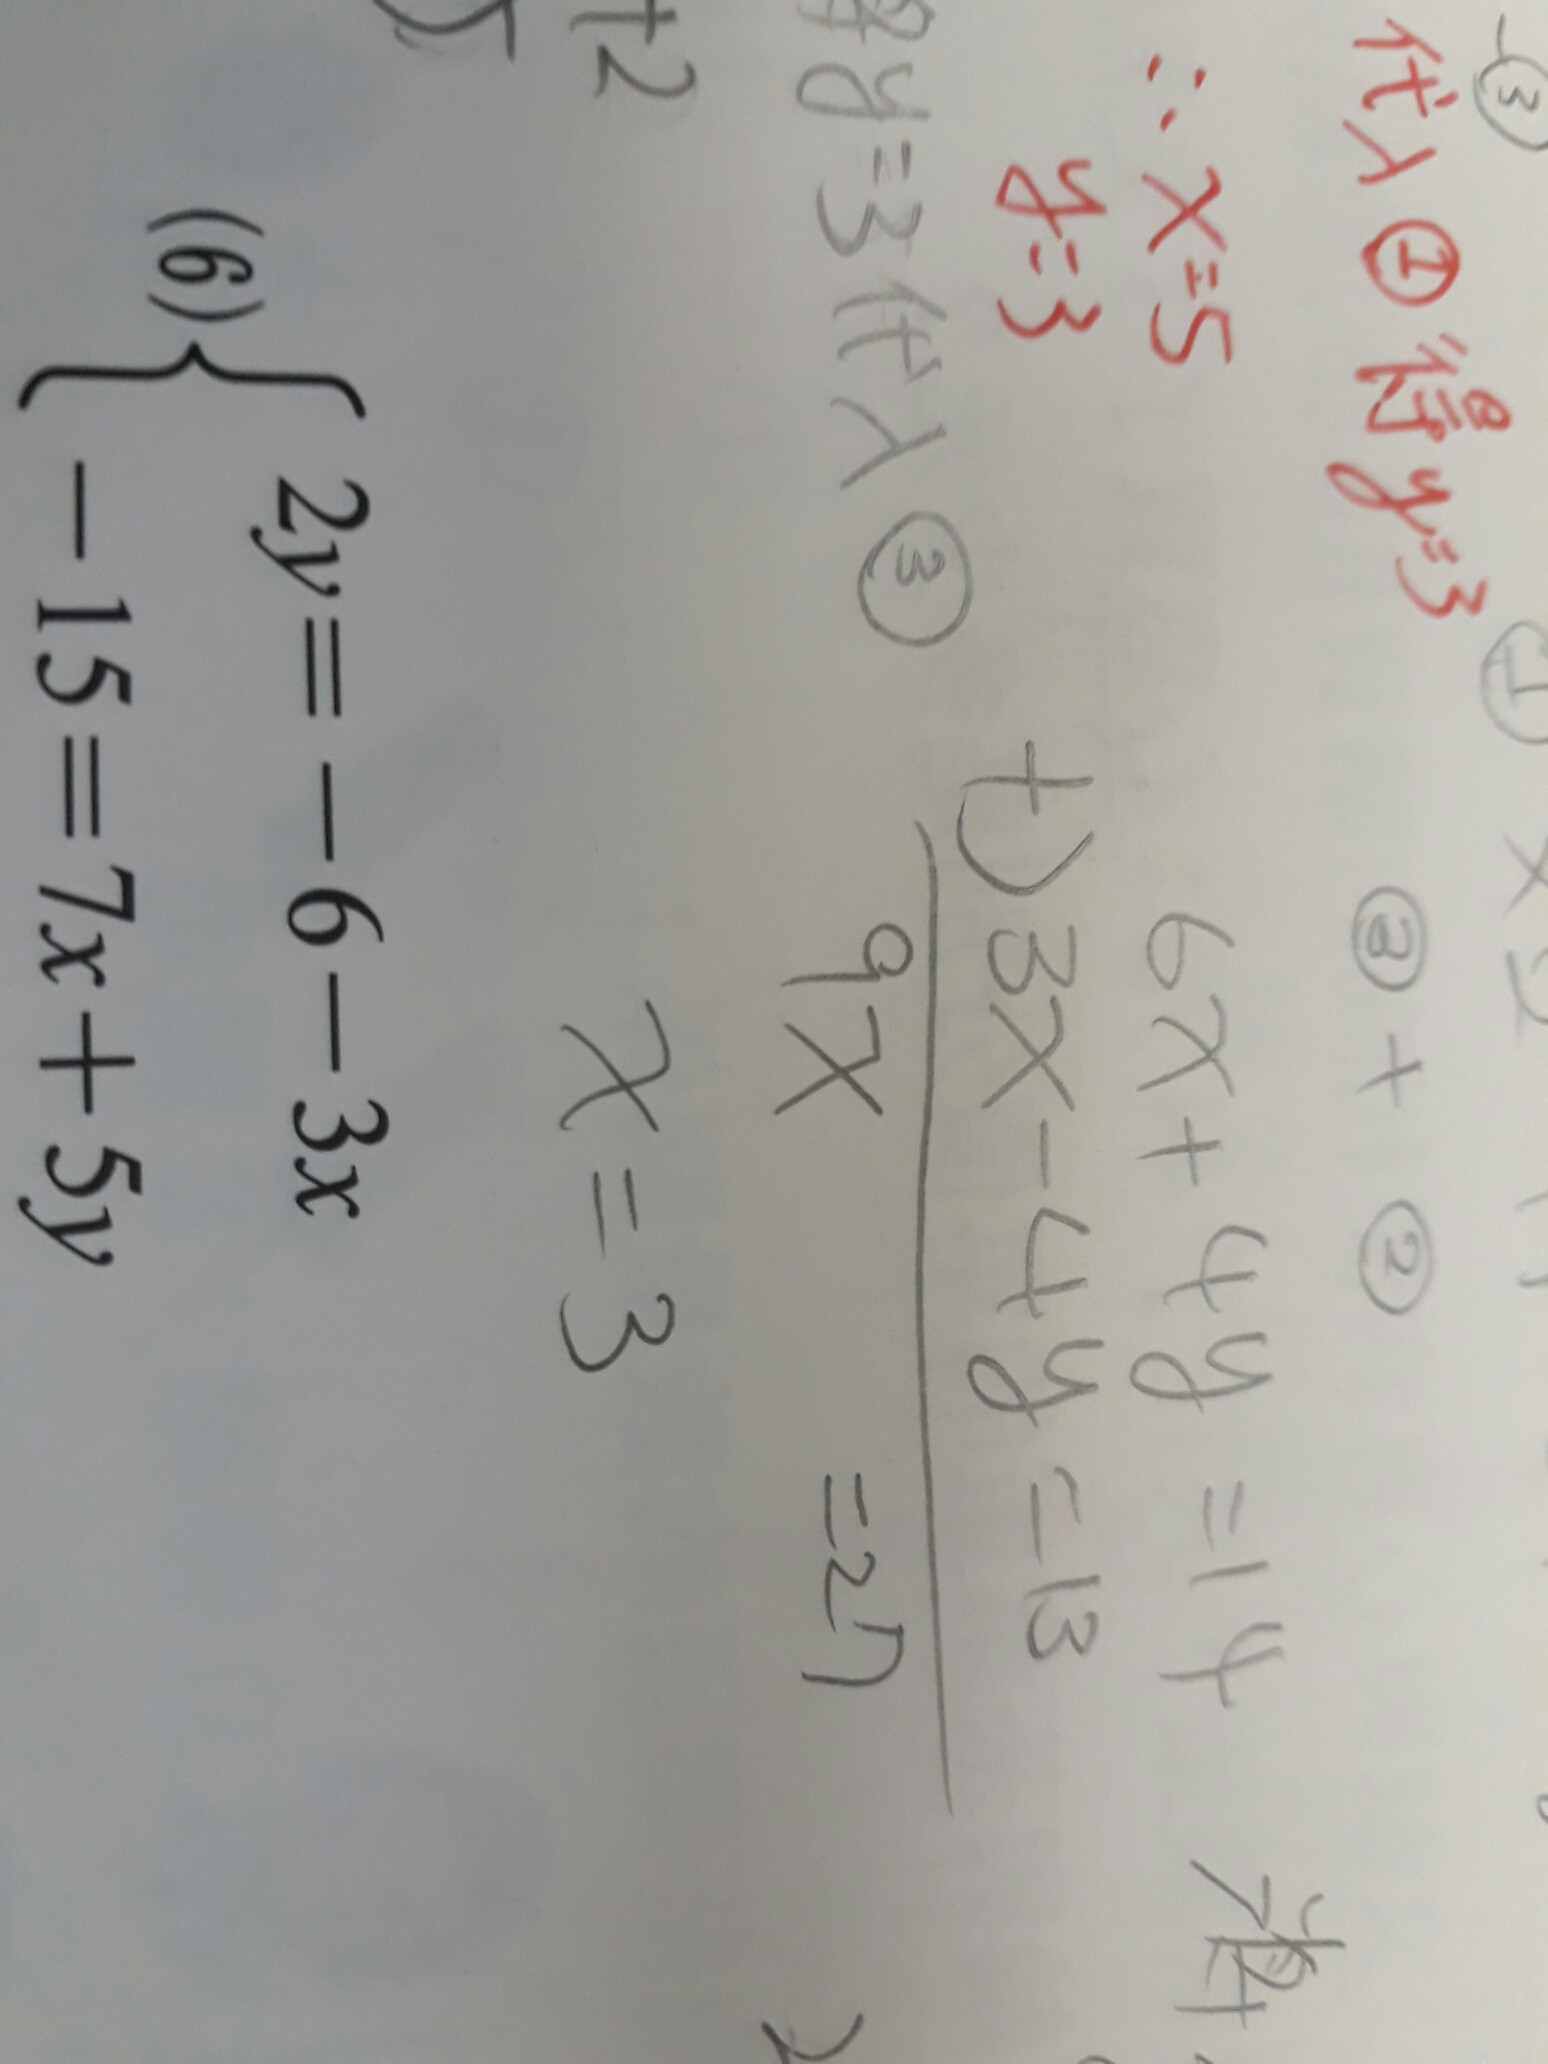 ③
代入①得y=3
①×2
③+②
∴x=5
y=3
6x+4y=14
+)3x-4y=13
9x =27
y=3代入③
x=3
+2
(6){2y=-6-3x
-15=7x+5y